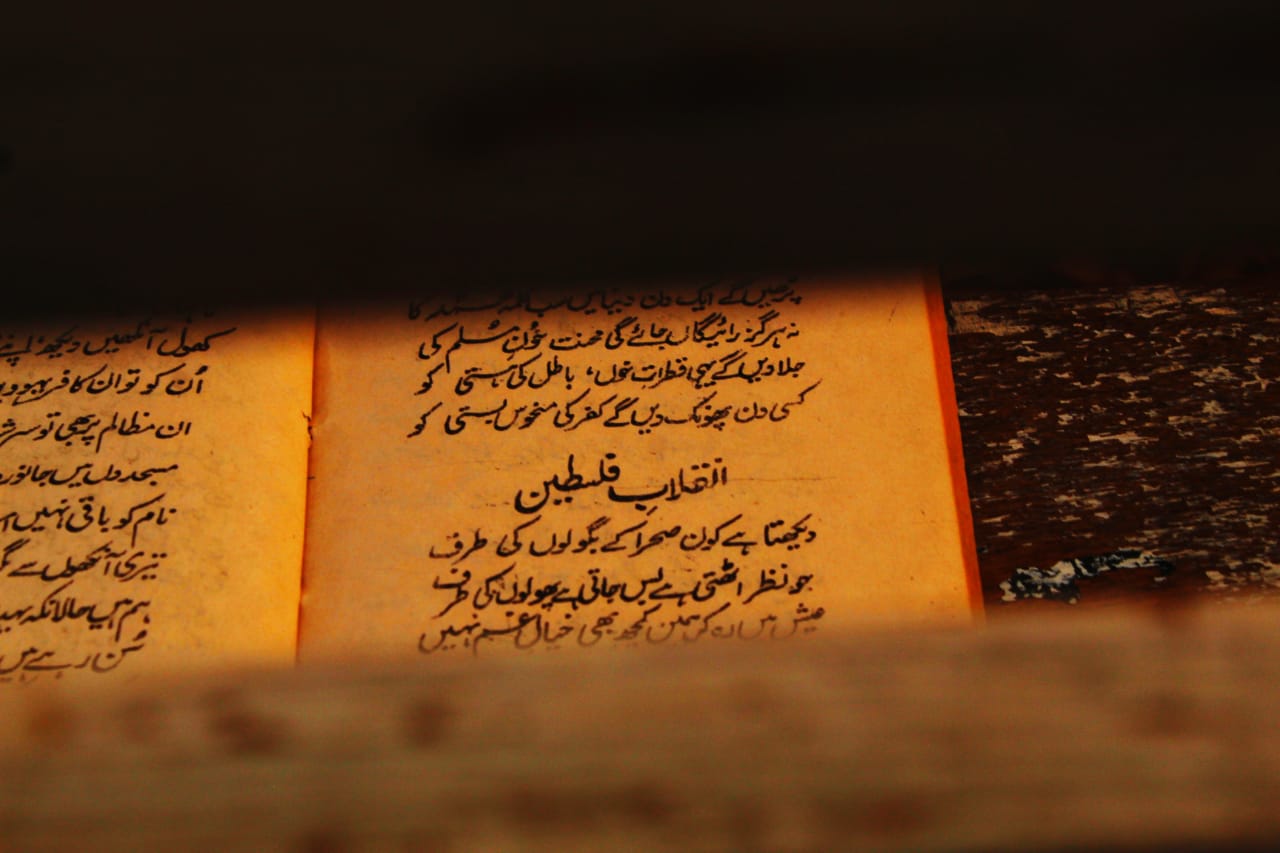 کے ایک دن دنیا میں
نہ ہرگز رائیگاں جائے گی محنت خونِ مسلم کی
جلا دیں گے یہی قطراتِ خوں، باطل کی ہستی کو
کسی دن پھونک دیں گے کفر کی منحوس بستی کو
انقلابِ فلسطین
دیکھتا ہے کون صحرا کے بگولوں کی طرف
جو نظر اٹھتی ہے بس جاتی ہے پھولوں کی طرف
عیش میں ان کو کچھ بھی خیالِ غم نہیں
کھول آنکھیں دیکھ اپنے
اُن کو تو ان کافر
ان مظالم پر بھی تو سر
مسجدوں میں جانور
نام کو باقی نہیں
تیری آنکھوں سے
ہم ہیں حالانکہ
سُن رہے ہیں